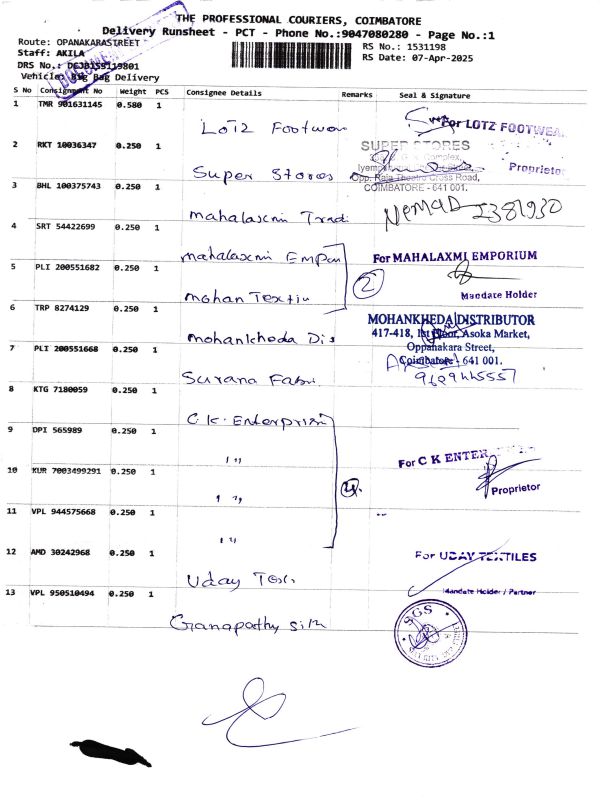 THE PROFESSIONAL COURIERS, COIMBATORE
Delivery Runsheet - PCT - Phone No.:9047080280 - Page No.:1
Route: OPANAKARASTREET
RS No.: 1531198
Staff: AKILA
RS Date: 07-Apr-2025
DRS No.:
Vehicle: Big Bag Delivery
S No Consignment No Weight PCS Consignee Details Remarks Seal & Signature
1 TMR 901631145 0.580 1
Lotz Footwear For LOTZ FOOTWEAR
2 RKT 10036347 0.250 1
SUPER STORES
Proprietor
Super Stores
Opp. Raja Theatre Cross Road,
COIMBATORE - 641 001.
3 BHL 100375743 0.250 1
Mahalaxmi Trad
4 SRT 54422699 0.250 1
Mahalaxmi Empori For MAHALAXMI EMPORIUM
5 PLI 200551682 0.250 1
2
Mandate Holder
Mohan Textiu
6 TRP 8274129 0.250 1
MOHANKHEDA DISTRIBUTOR
417-418, 1st Floor, Asoka Market,
Mohankheda Dis
Oppanakara Street,
7 PLI 200551668 0.250 1
Coimbatore - 641 001.
Surana Fabri
9629445557
8 KTG 7180059 0.250 1
C.K. Enterprise
9 DPI 565989 0.250 1
" "
For C K ENTER
10 KUR 7003499291 0.250 1
4.
Proprietor
" "
11 VPL 944575668 0.250 1
" "
12 AMD 30242968 0.250 1
For UDAY TEXTILES
Uday Tex
13 VPL 950510494 0.250 1
Mandate Holder / Partner
SGS
Ganapathy Silk